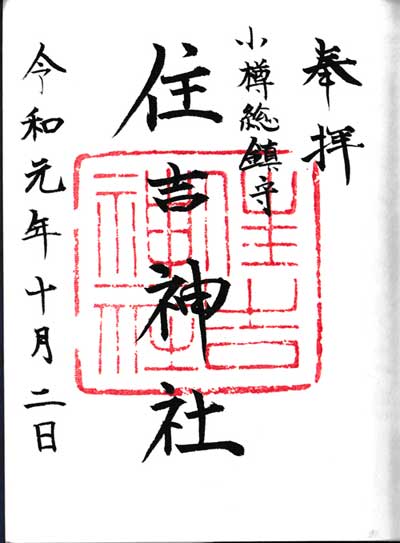 奉拝
小樽総鎮守
住吉神社
住吉神社
令和元年十月二日